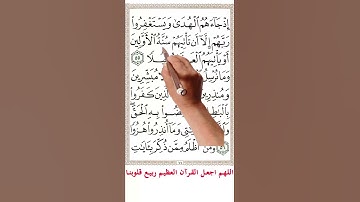 إِذْ جَآءَهُمُ ٱلْهُدَىٰ وَيَسْتَغْفِرُوا۟
رَبَّهُمْ إِلَّآ أَن تَأْتِيَهُمْ سُنَّةُ ٱلْأَوَّلِينَ
أَوْ يَأْتِيَهُمُ ٥٥
وَمَا نُرْسِلُ مُبَشِّرِينَ
ٱلَّذِينَ كَفَرُوا۟
بِٱلْبَٰطِلِ بِهِ ٱلْحَقَّ
وَمَآ أُنذِرُوا۟ هُزُوًا
٥٦ وَمَنْ أَظْلَمُ مِمَّن ذُكِّرَ بِـَٔايَٰتِ
اللهم اجعل القرآن العظيم ربيع قلوبنا